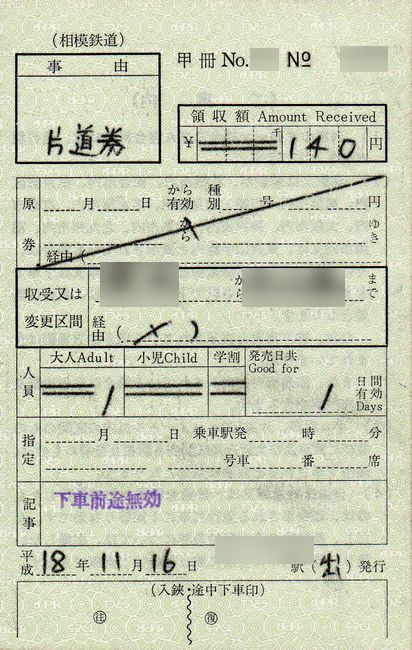 (相模鉄道)
甲冊 No. No
事 由
片道券
領収額 Amount Received
￥ 千 140 円
原券 月 日 から有効 種別 号 円
から ゆき
経由(
収受又は変更区間 から まで
経由( )
人員 大人Adult 小児Child 学割 発売日共 Good for
1 1 日間有効 Days
指定 月 日 乗車駅発 時 分
号車 番 席
記事 下車前途無効
平成 18 年 11 月 16 日 駅(出)発行
(入鋏・途中下車印)
往 復